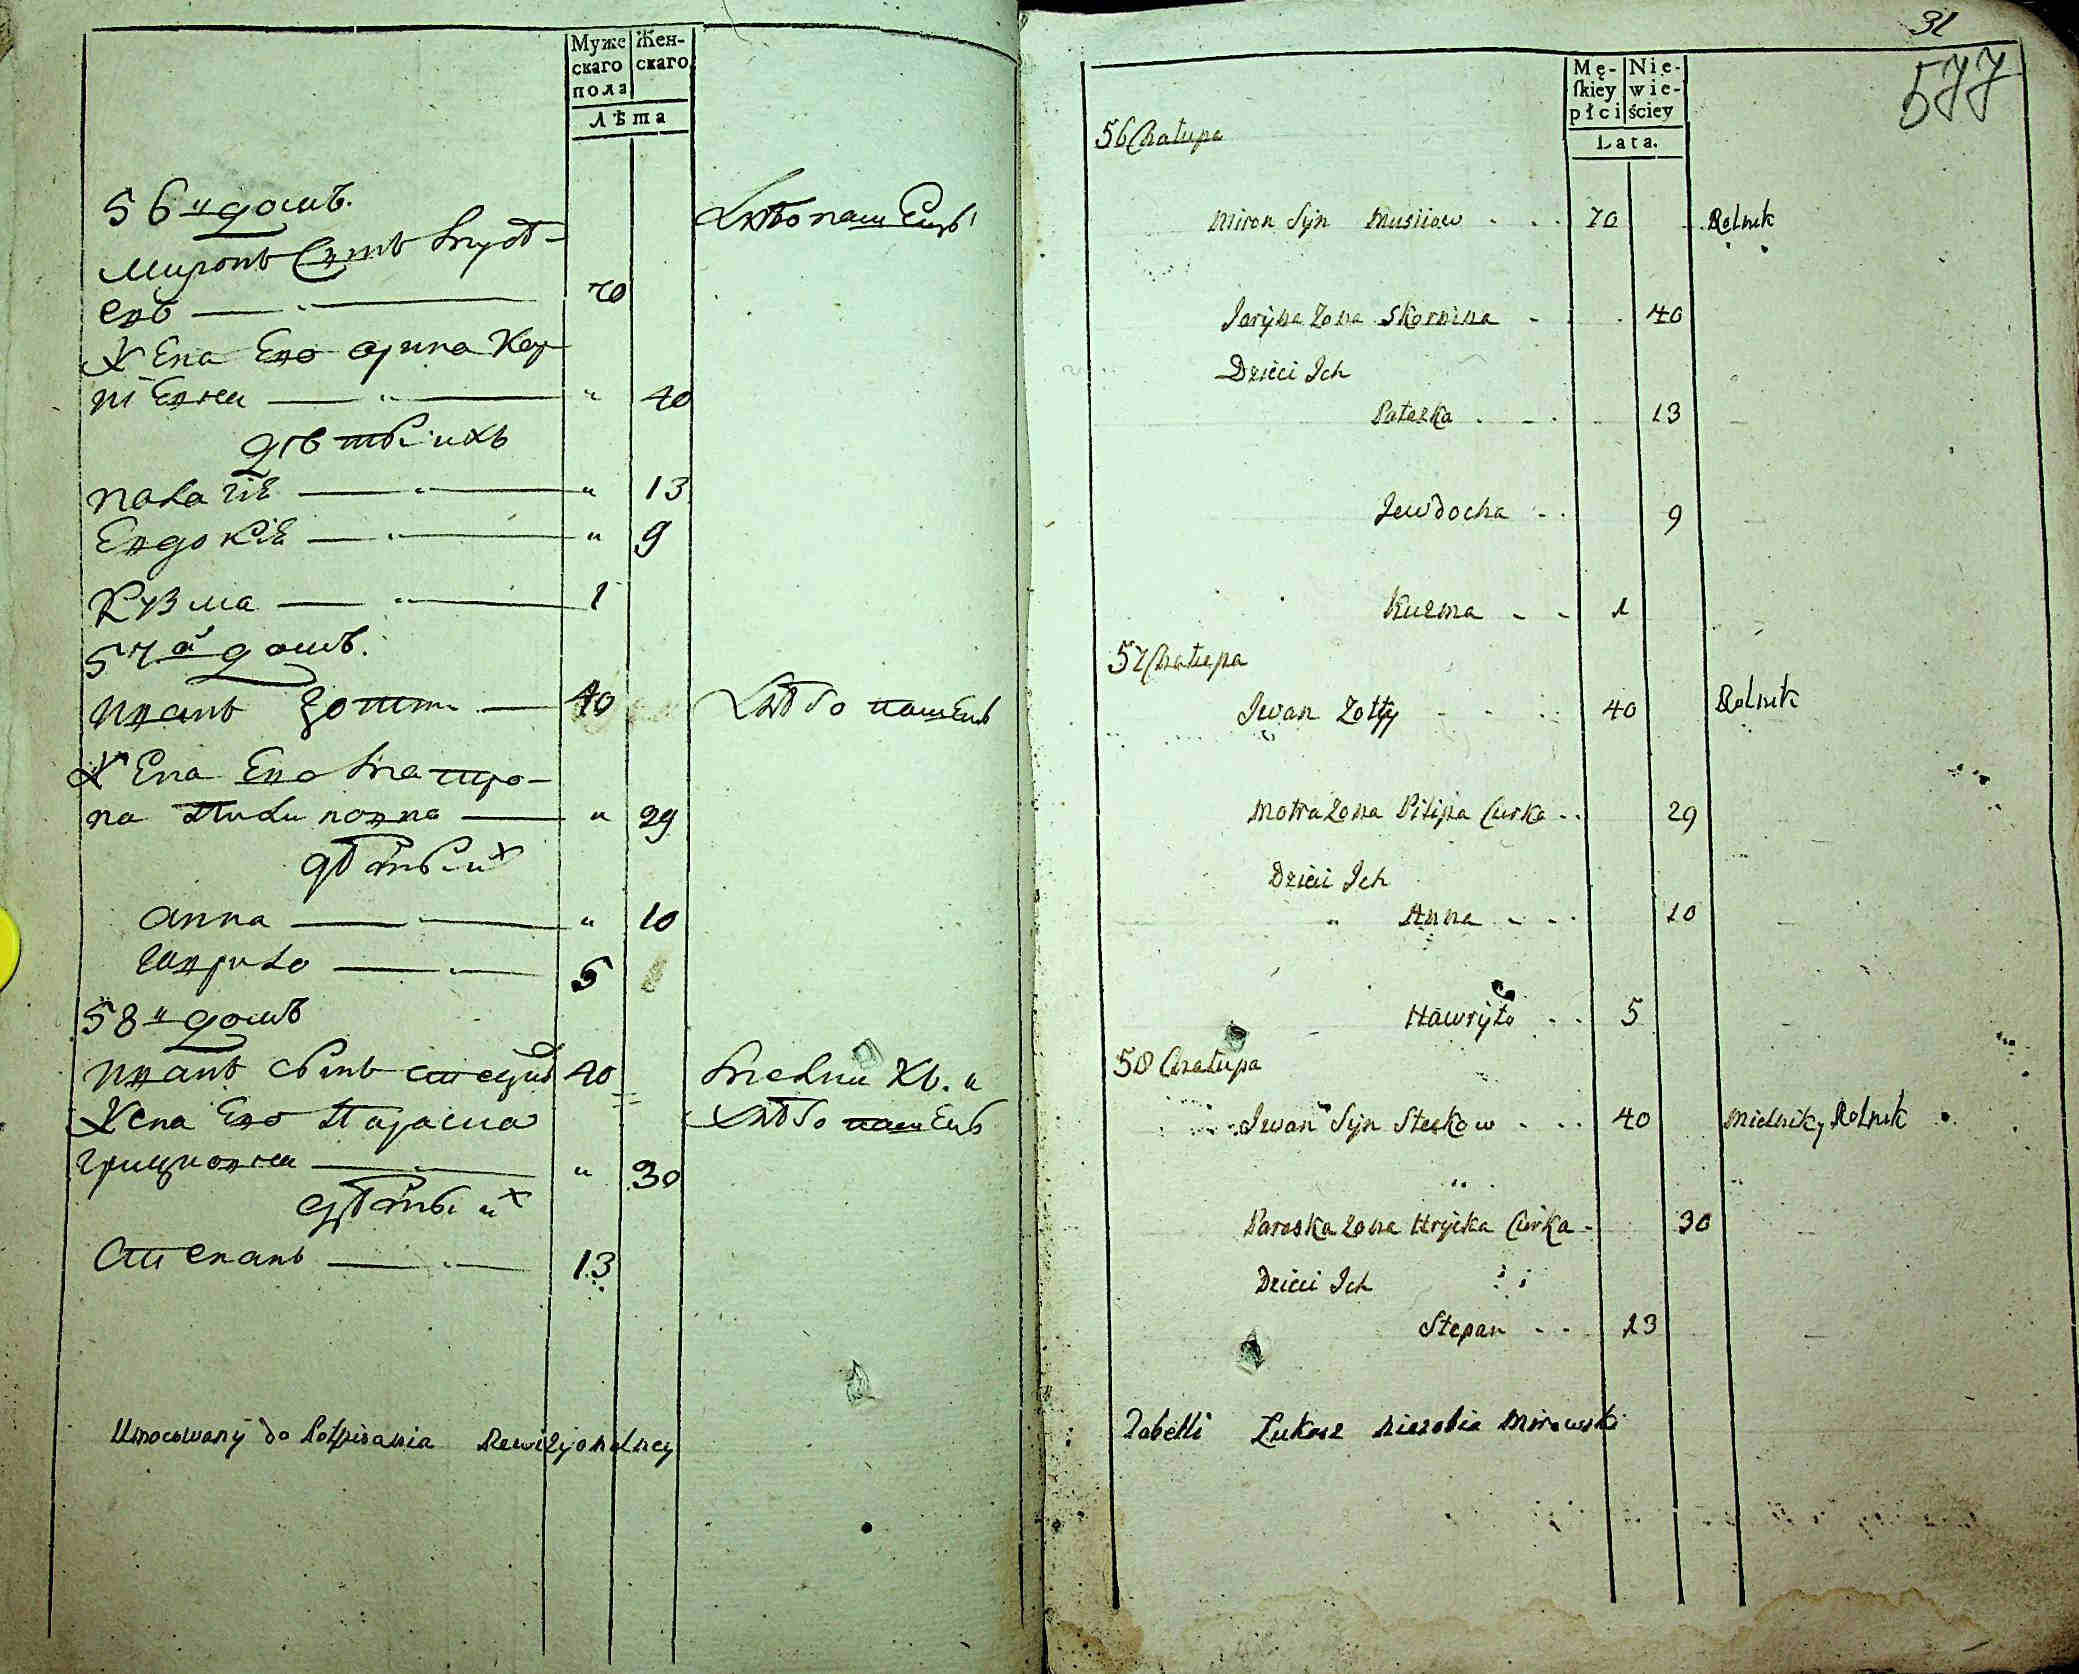 Муже
скаго
пола
Жен-
скаго
Лѣта
56й домъ.
Миронъ Сынъ Мусѣ-
евъ 70 Хлѣбопашецъ
Жена Ево Орина Кор-
нiевна " 40
дѣти ихъ
Палагiя " 13
Евдокiя " 9
Кузма 1
57й домъ.
Иванъ Золтый 40 Хлѣбопашецъ
Жена Ево Матро-
на Пилиповна " 29
дѣти ихъ
Анна " 10
Гаврило 5
58й домъ
Иванъ сынъ Стецковъ 40 Мелникъ и
Жена Ево Параска Хлѣбопашецъ
Грицковна " 30
дѣти ихъ
Степанъ 13
Umocowany do Potpisania Rewizyonalney
31
577
Mę-
skiey
płci
Nie-
wie-
ściey
Lata.
56 Chałupa
Miron Syn Musiiow 70 Rolnik
Jaryna Zona Skornina 40
Dzieci Ich
Patezka 13
Jewdocha 9
Kuzma 1
57 Chałupa
Jwan Zołty 40 Rolnik
Motra Zona Pilipa Curka 29
Dzieci Ich
Anna 10
Hawryło 5
58 Chałupa
Jwan Syn Steckow 40 Mielnik y Rolnik
Paraska Zona Hrycka Curka 30
Dzieci Ich
Stepan 13
Tabelli Łukasz Mirowski